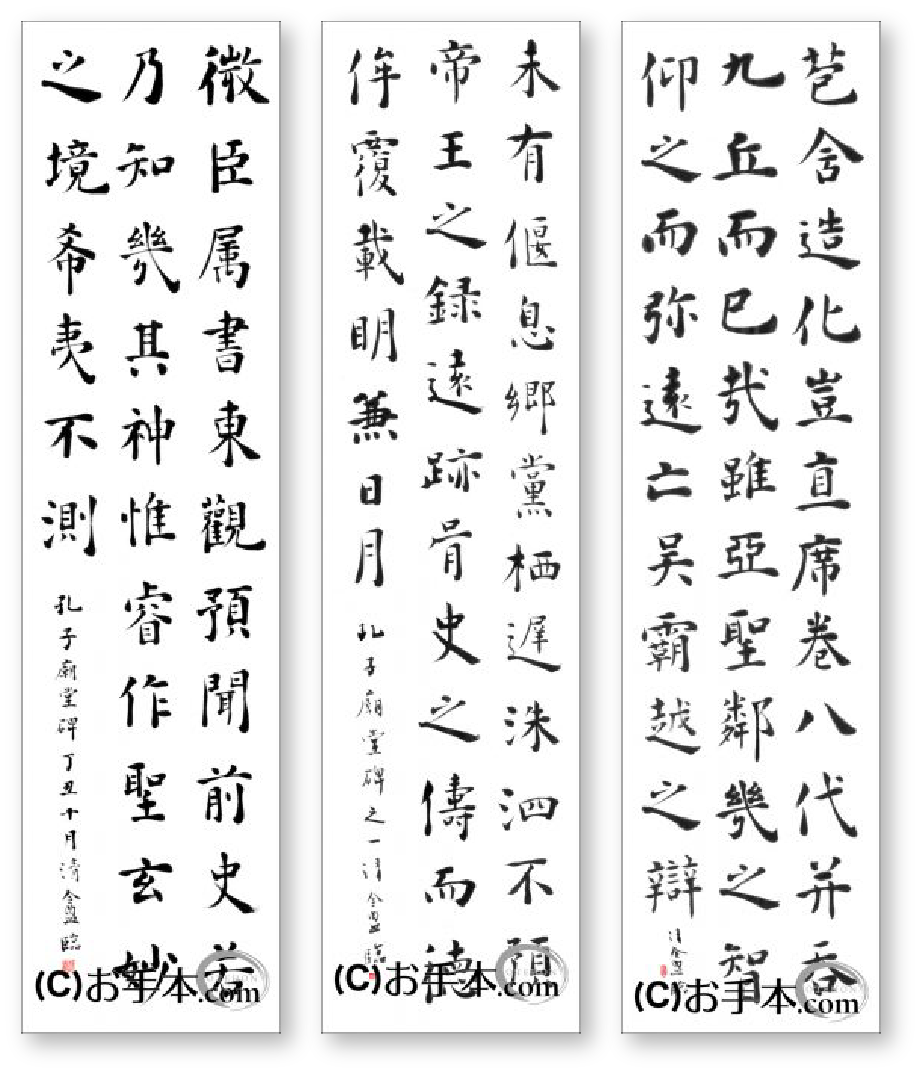 微臣属書東觀預聞前史若
乃知幾其神惟睿作聖玄妙
之境希夷不測
孔子廟堂碑丁丑十月清盦臨
(C)お手本.com
未有偃息鄉黨栖遲洙泗不預
帝王之録遠跡胥史之儔而德
侔覆載明兼日月
孔子廟堂碑之一清盦臨
(C)お手本.com
苞舍造化豈直席卷八代并吞
九丘而已哉雖亞聖鄰幾之智
仰之而弥遠亡吴霸越之辯
清盦
(C)お手本.com